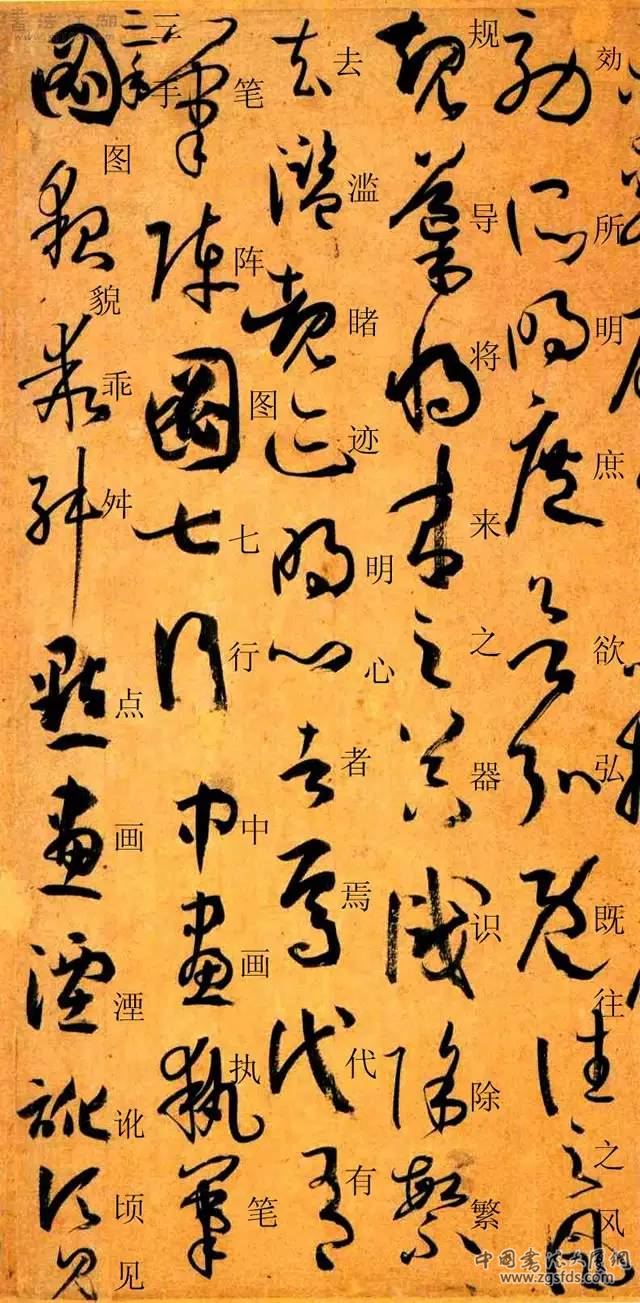 効所明庶欲弘既往之风
规导将来之器识除繁
去滥睹迹明心者焉代有
笔阵图七行中画执笔
三手
图貌乖舛点画湮讹顷见
www.zgsfds.com